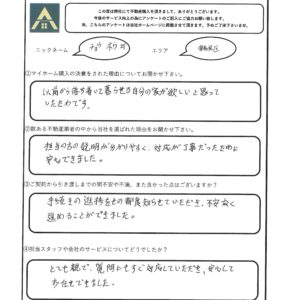 この度は弊社にて不動産を購入頂きまして、ありがとうございます。
今後のサービス向上の為にアンケートのご記入にご協力お願い致します。
尚、こちらのアンケートは当社ホームページに掲載させて頂きます。予めご了承下さいませ。
ニックネーム
エリア
①マイホーム購入の決意をされた理由についてお聞かせ下さい。
以前から落ち着いて暮らせる自分の家が欲しいと思って
いたためです。
②数ある不動産業者の中から当社を選ばれた理由をお聞かせ下さい。
担当の方の説明が分かりやすく、対応が丁寧だったために
安心できました。
③ご契約から引き渡しまでの間不安や不満、また良かった点はございますか？
手続きの進捗をその都度知らせていただき、不安なく
進めることができました。
④担当スタッフや会社のサービスについてどうでしたか？
とても親切で、質問にもすぐ対応していただき、安心して
お任せできました。